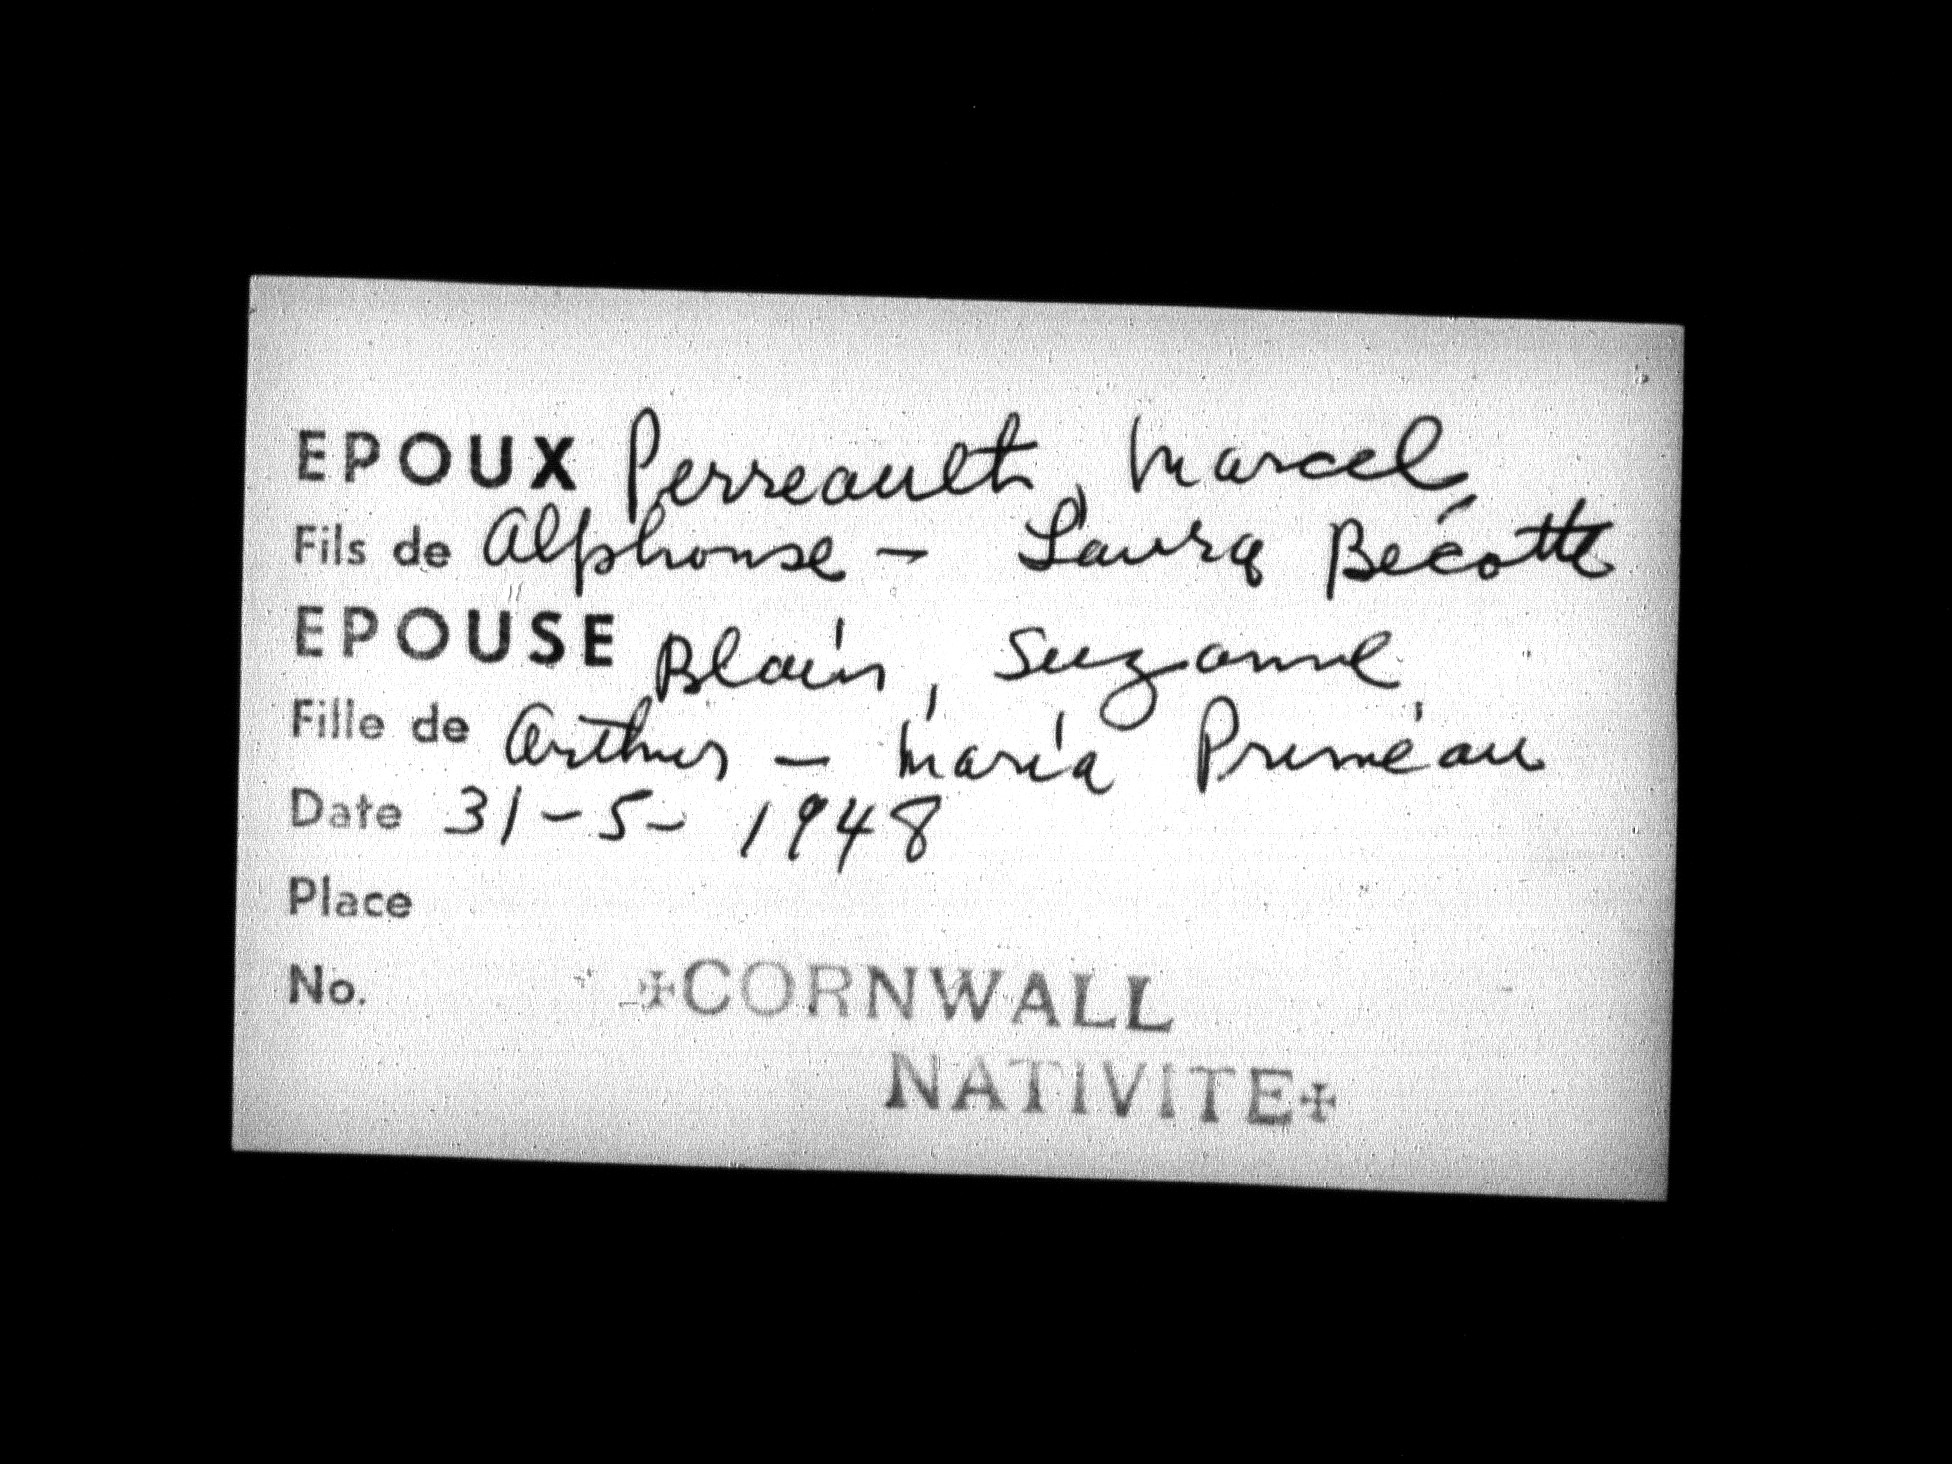 EPOUX Perreault, Marcel
Fils de Alphonse - Laura Bécotte
EPOUSE Blain, Suzanne
Fille de Arthur - Maria Priméau
Date 31-5-1948
Place
No. ✠CORNWALL
NATIVITE✠